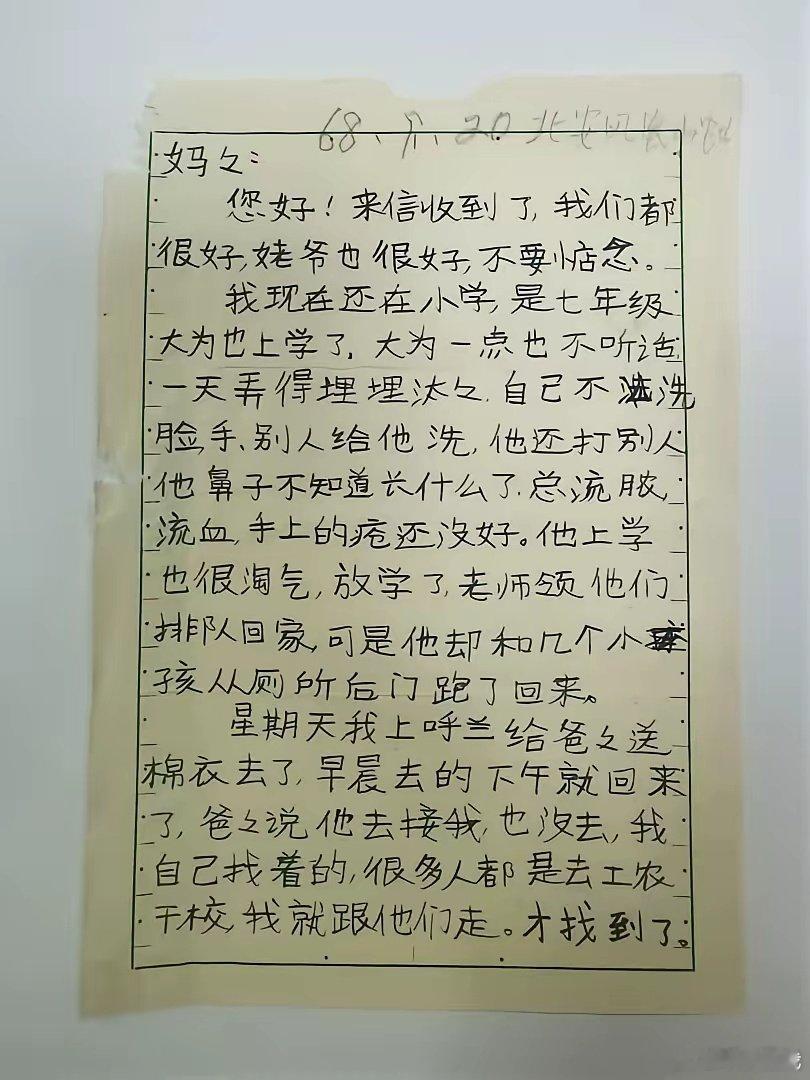 68、9、20 北安
妈々：
您好！来信收到了，我们都
很好，姥爷也很好，不要惦念。
我现在还在小学，是七年级
大为也上学了，大为一点也不听话，
一天弄得埋埋汰々，自己不洗
脸、手、别人给他洗，他还打别人
他鼻子不知道长什么了，总流脓，
流血，手上的疮还没好。他上学
也很淘气，放学了，老师领他们
排队回家，可是他却和几个小
孩从厕所后门跑了回来。
星期天我上呼兰给爸々送
棉衣去了，早晨去的下午就回来
了，爸々说他去接我，也没去，我
自己找着的，很多人都是去工农
干校，我就跟他们走。才找到了。